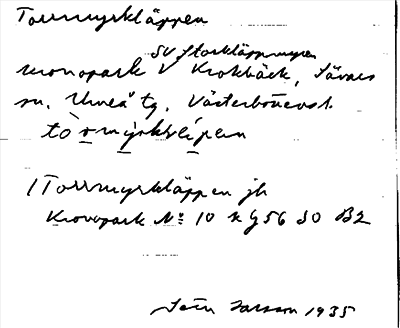 Torrmyrkläppen
SV Storkläppmyren
kronopark V Krokbäck, Sävars
sn. Umeå tg. Västerbottens l.
tòrmyrkḷépen
1 Torrmyrkläppen jb
Kronopark № 10 x g 56 SO B2
Larsson 1935